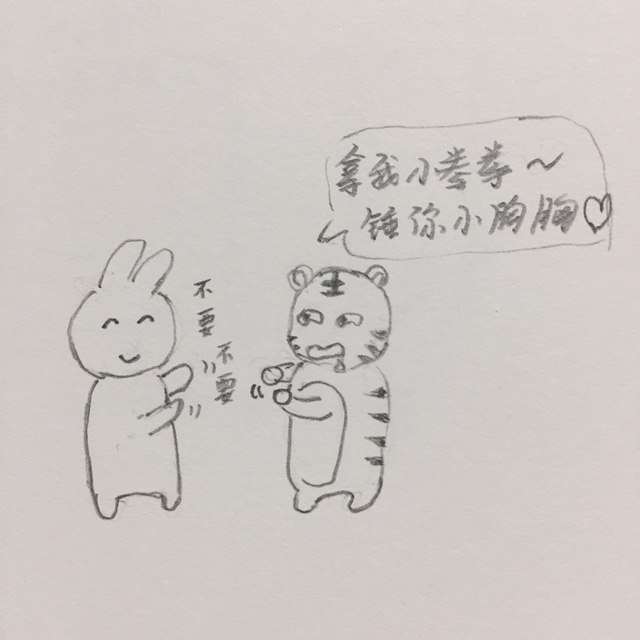 拿我小拳拳～
锤你小胸胸♡
不要不要